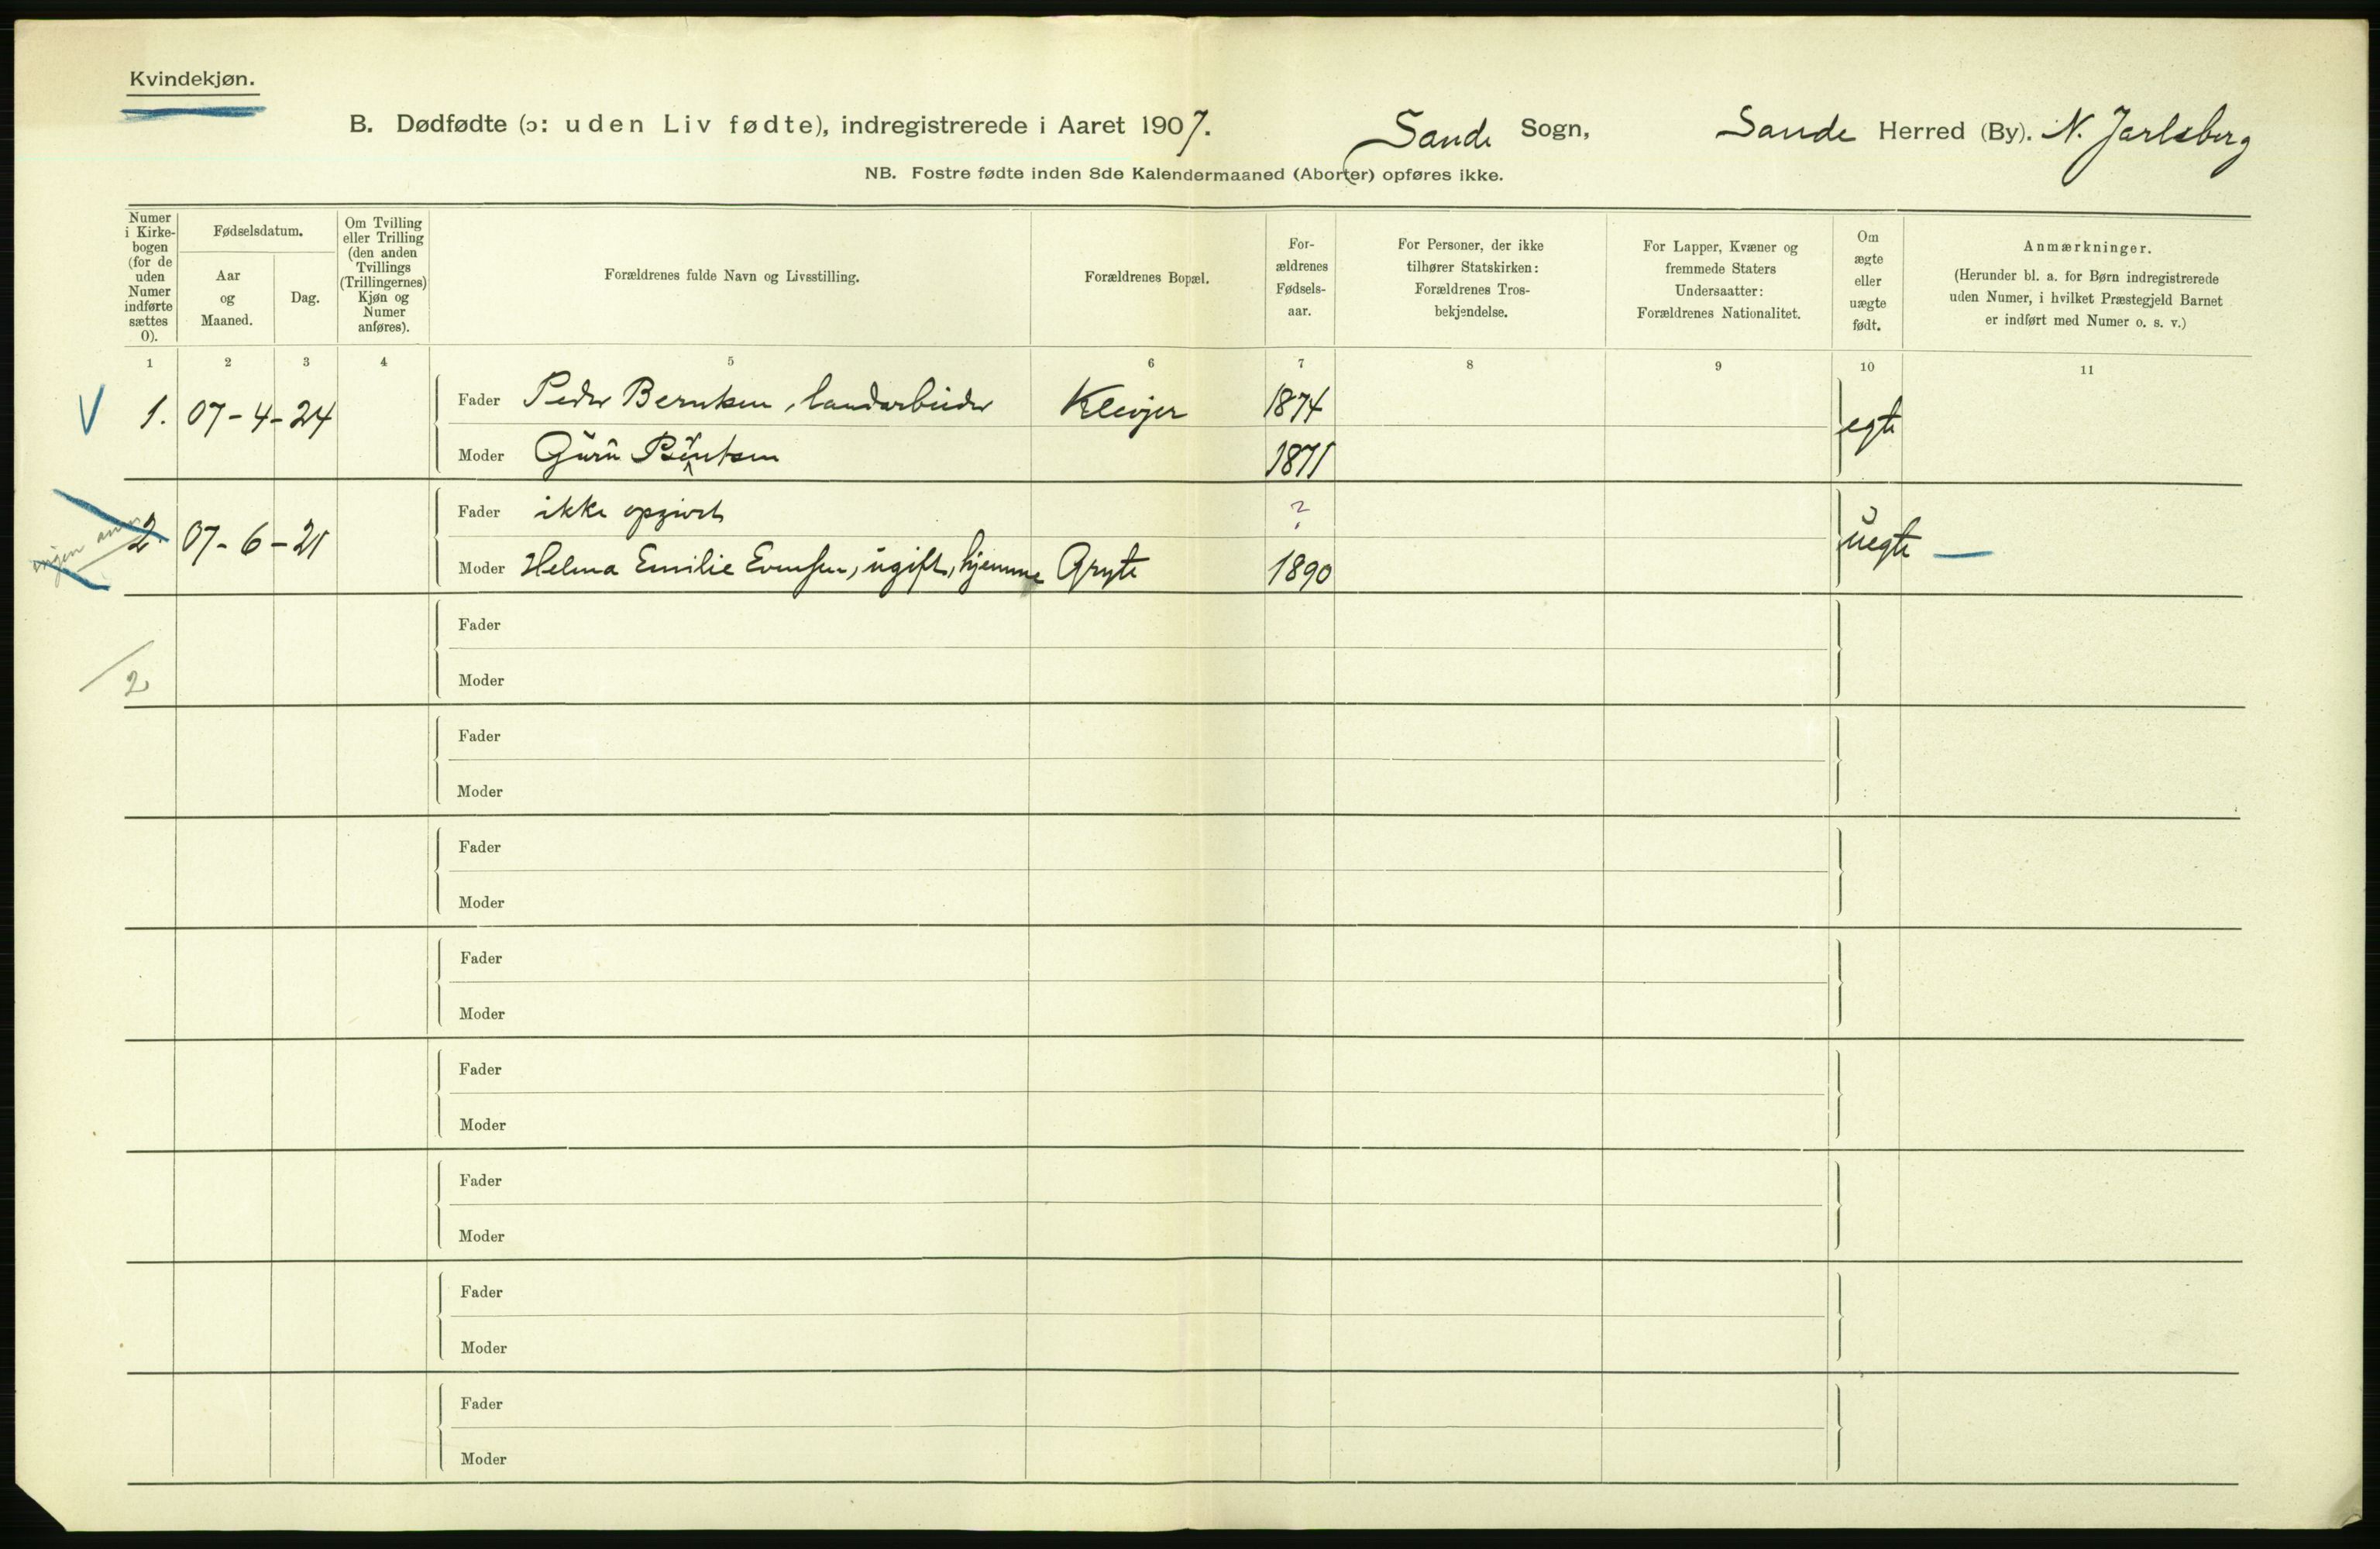 Kvindekjøn.
B. Dødfødte (ɔ: uden Liv fødte), indregistrerede i Aaret 1907. Sande Sogn, Sande Herred (By). N. Jarlsberg
NB. Fostre fødte inden 8de Kalendermaaned (Aborter) opføres ikke.
Numer i Kirke-bogen (for de uden Numer indførte sættes 0).
Fødselsdatum.
Aar og Maaned.
Dag.
Om Tvilling eller Trilling (den anden Tvillings (Trillingernes) Kjøn og Numer anføres).
Forældrenes fulde Navn og Livsstilling.
Forældrenes Bopæl.
For-ældrenes Fødsels-aar.
For Personer, der ikke tilhører Statskirken: Forældrenes Tros-bekjendelse.
For Lapper, Kvæner og fremmede Staters Undersaatter: Forældrenes Nationalitet.
Om ægte eller uægte født.
Anmærkninger.
(Herunder bl. a. for Børn indregistrerede uden Numer, i hvilket Præstegjeld Barnet er indført med Numer o. s. v.)
1 2 3 4 5 6 7 8 9 10 11
V 1. 07-4-24 Fader Peder Berntsen, landarbeider Klevjer 1874 egte
Moder Guru Berntsen 1871
2. 07-6-21 Fader ikke opgivet ? uegte —
Moder Helma Emilie Evensen, ugift, hjemme Gryte 1890
Fader
2 Moder
Fader
Moder
Fader
Moder
Fader
Moder
Fader
Moder
Fader
Moder
Fader
Moder
Fader
Moder